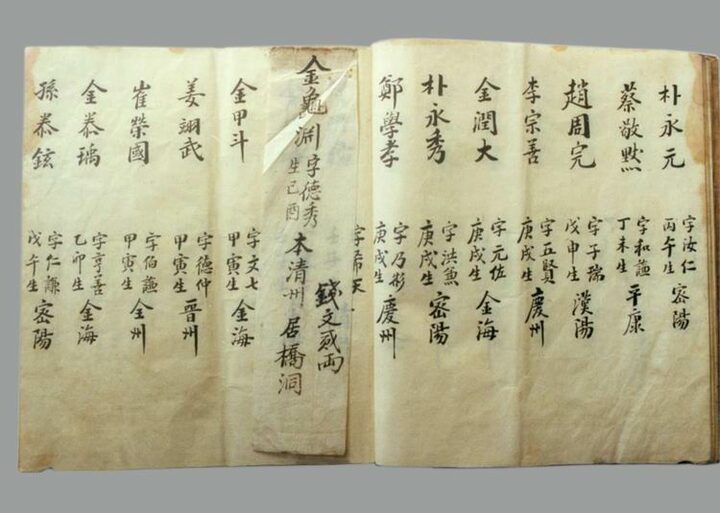 朴永元
字汝仁
丙午生 密陽
蔡敬默
字和謙
丁未生 平康
趙周完
字子瑞
戊申生 漢陽
李宗善
字五賢
庚戌生 慶州
金潤大
字元佐
庚戌生 金海
朴永秀
字洪
庚戌生 密陽
鄭學孝
字乃彬
庚戌生 慶州
字希天
金龜淵 字德秀
生己酉 本清州 居橋洞
錢文貳兩
金甲斗
字文七
甲寅生 金海
姜翊武
字德仲
甲寅生 晋州
崔榮國
字伯謙
甲寅生 全州
金泰瑀
字亨善
乙卯生 金海
孫泰鉉
字仁謙
戊午生 密陽